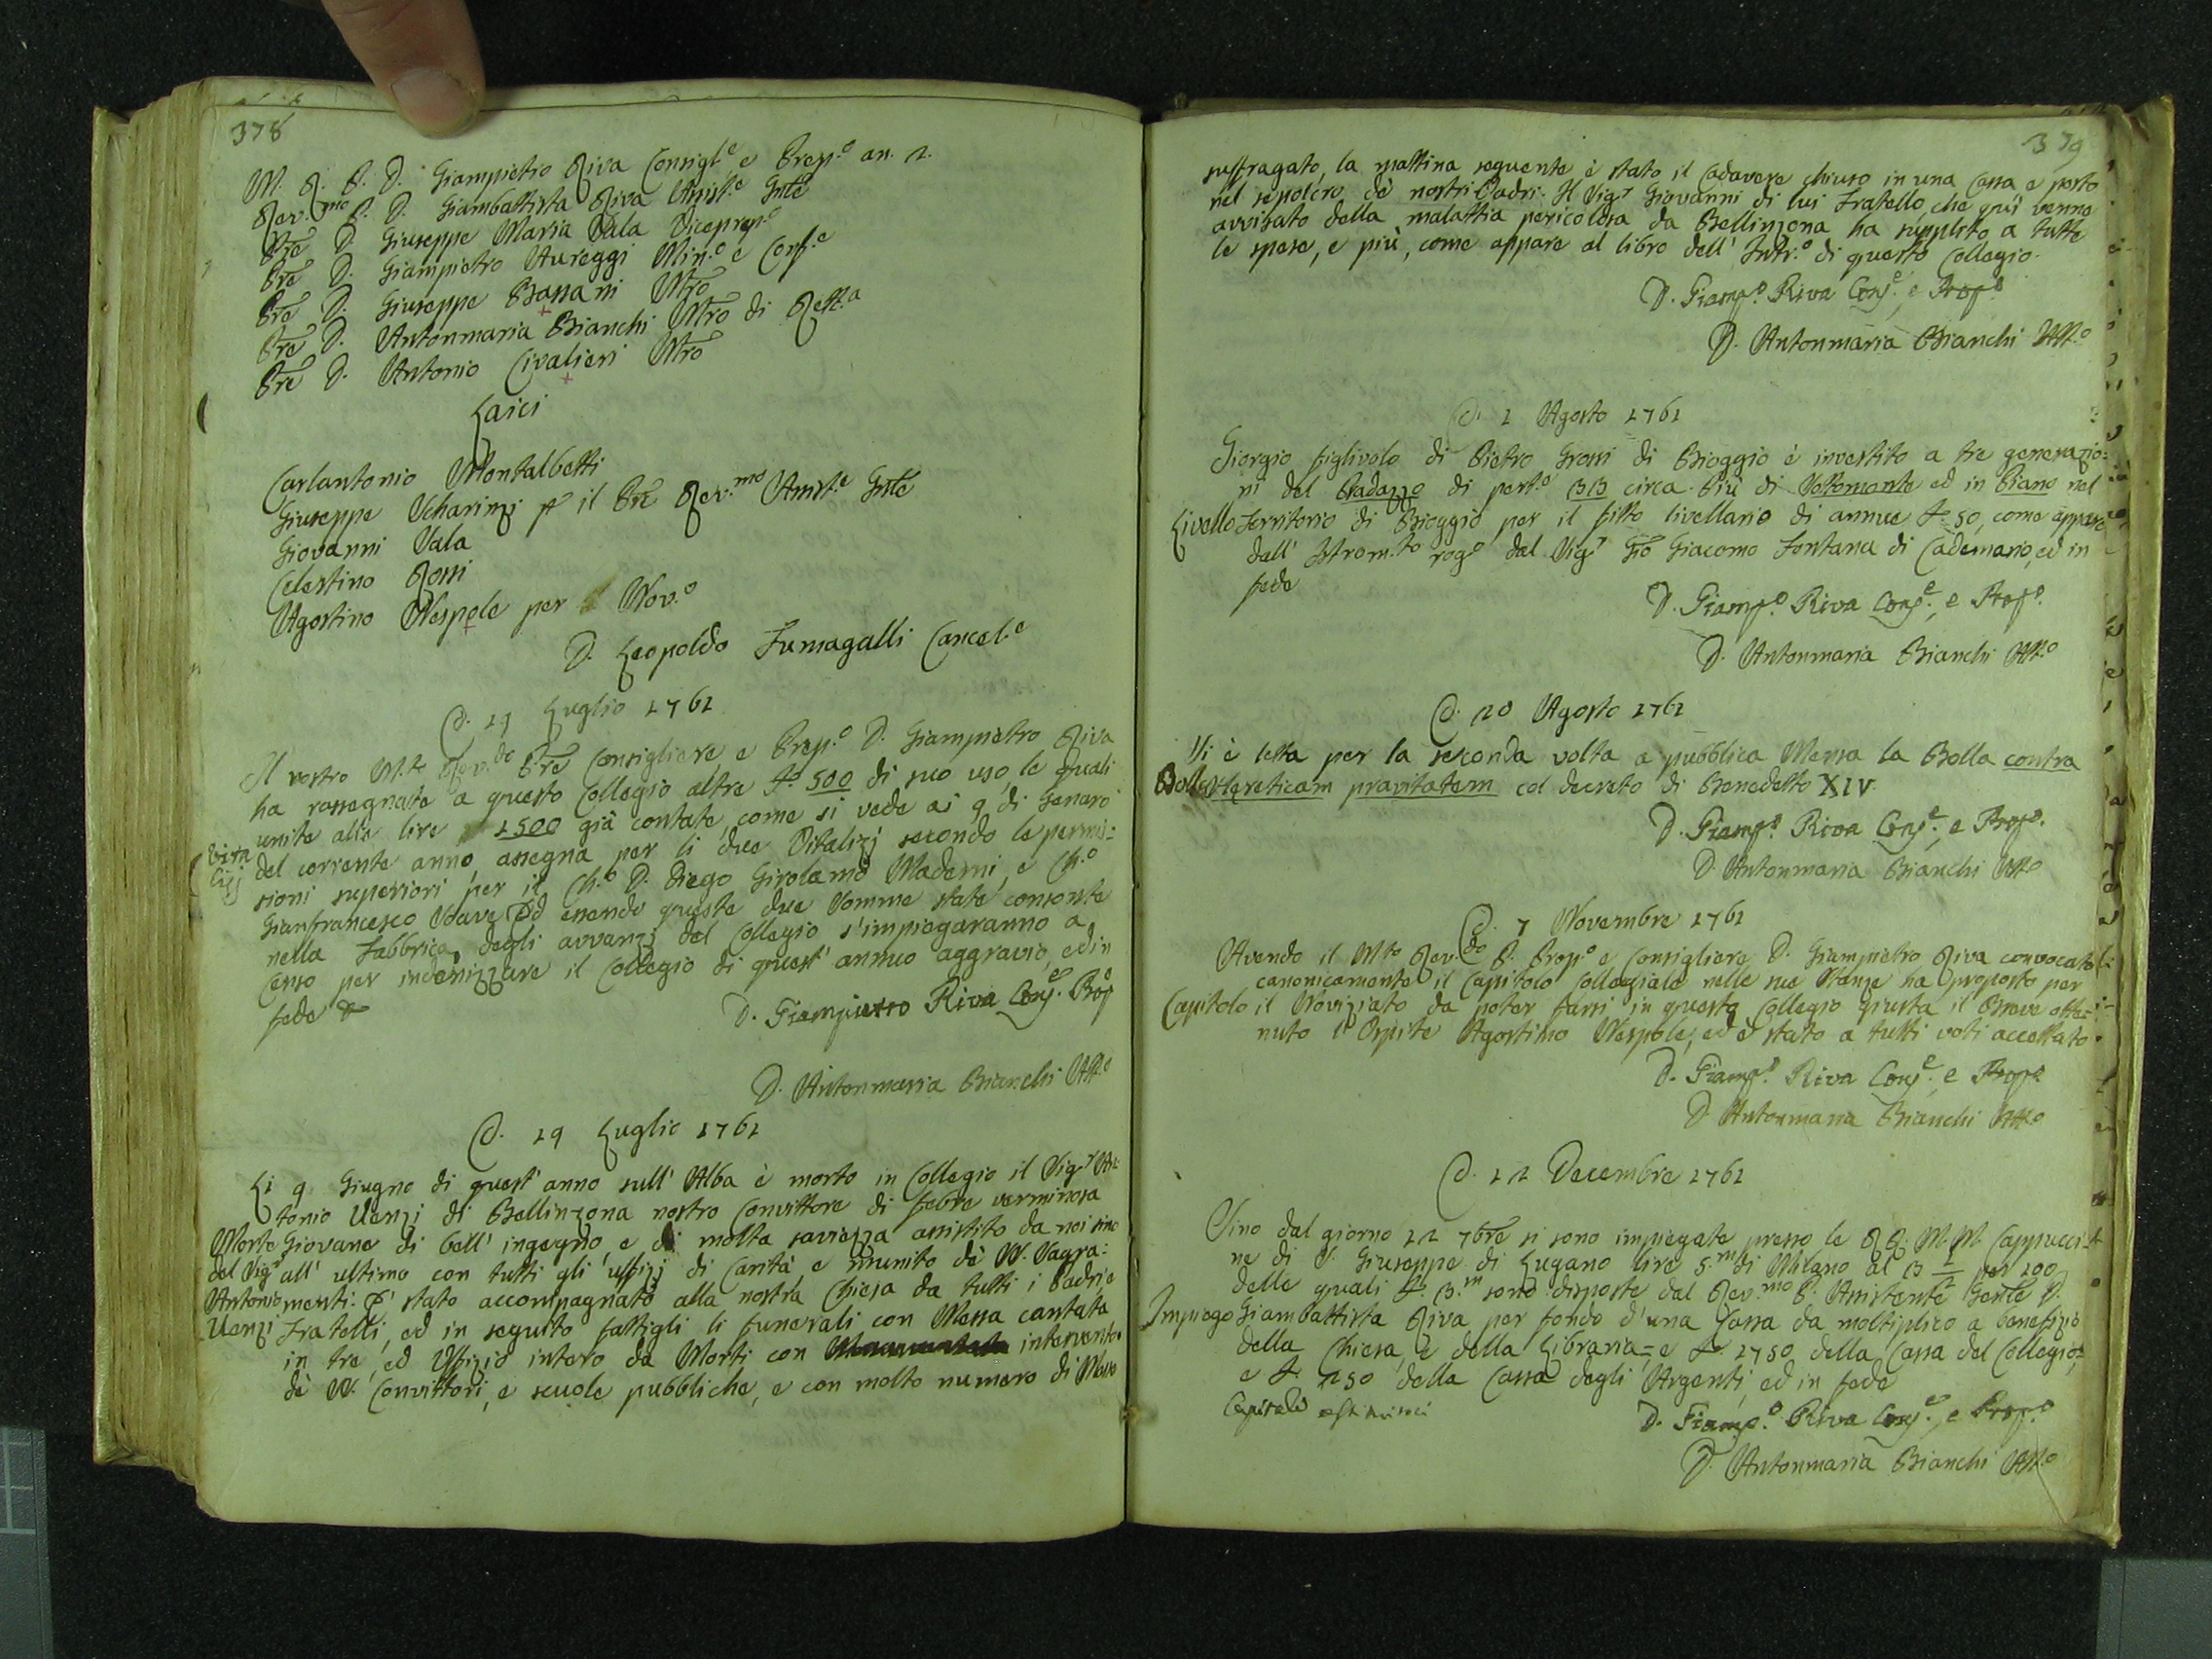 378
M. R. P. D. Giampietro Riva Consigl.e e Prep.o an. 2.
Rev.mo P. D. Giambattista Riva Assist.e Gnle
Pre D. Giuseppe Maria Sala Viceprep.o
Pre D. Giampietro Aureggi Min.o e Conf.e
Pre D. Giuseppe Bassani Mro
Pre D. Antonmaria Bianchi Mro di Rett.a
Pre D. Antonio Civalieri Mro
Laici
Carlantonio Montalbetti
Giuseppe Scharinzi p il Pre Rev.mo Assist.e Gnle
Giovanni Sala
Celestino Rossi
Agostino Nespole per Nov.o
D. Leopoldo Fumagalli Cancel.e
D. 17 Luglio 1761
Il nostro M.to Rev.do Pre Consigliere, e Prep.o D. Giampietro Riva
ha rassegnate a questo Collegio altre £. 500 di suo uso, le quali
unite alle lire 1500 già contate, come si vede ai 9 di Genaro
Vita del corrente anno, assegna per li due Vitalizj secondo le permis:
lizj sioni superiori per il Ch.o D. Diego Girolamo Maderni, e Ch.o
Gianfrancesco Soave. Ed essendo queste due somme state consonte
nella Fabbrica, degli avvanzi del Collegio s'impiegaranno a
Censo per indenizzare il Collegio di quest' annuo aggravio, ed in
fede
D. Giampietro Riva Cons.e Prep
D. Antonmaria Bianchi Att.o
D. 19 Luglio 1761
Li 9 Giugno di quest' anno sull' Alba è morto in Collegio il Sig.r An:
tonio Uenzi di Bellinzona nostro Convittore di febre verminosa
Morte Giovane di bell' ingegno, e di molta saviezza assistito da noi sino
del Sig.r all' ultimo con tutti gli uffizj di Carità, e munito dè SS. Sagra:
Antonio menti. E' stato accompagnato alla nostra Chiesa da tutti i Padri, e
Uenzi Fratelli, ed in seguito fattigli li funerali con Messa cantata
in tre, ed Uffizio intero da Morti con intervento
dè SS. Convittori, e scuole pubbliche, e con molto numero di Messe
379
suffragato, la mattina seguente è stato il Cadavere chiuso in una Cassa e posto
nel sepolcro dè nostri Padri. Il Sig.r Giovanni di lui Fratello, che quì venne
avvisato della malattia pericolosa da Bellinzona ha supplito a tutte
le spese, e più, come appare al libro dell' Intr.o di questo Collegio.
D. Giamp.o Riva Cons.e, e Prep.o
D. Antonmaria Bianchi Att.o
D. 1 Agosto 1761
Giorgio figlivolo di Pietro Grossi di Bioggio è investito a tre generazio:
ni del Pradazzo di pert.e 33 circa. Più di Sottomonte ed in Piano nel
Livello Territorio di Bioggio per il fitto livellario di annue £. 50, come appare
dall' Istrom.to rog.o dal Sig.r Gio Giacomo Fontana di Cademario, ed in
fede
D. Giamp.o Riva Cons.e, e Prep.o
D. Antonmaria Bianchi Att.o
D. 20 Agosto 1761
Si è letta per la seconda volta a pubblica Mensa la Bolla contra
Bolle Hæreticam pravitatem col decreto di Benedetto XIV.
D. Giamp.o Riva Cons.e, e Prep.o
D. Antonmaria Bianchi Att.o
D. 7 Novembre 1761
Avendo il M.to Rev.do P. Prep.o e Consigliere D. Giampietro Riva convocato
canonicamente il Capitolo Collegiale nelle sue Stanze ha proposto per
Capitolo il Noviziato da poter farsi in questo Collegio giusta il Breve otte:
nuto l'Ospite Agostino Nespole, ed è stato a tutti voti accettato.
D. Giamp.o Riva Cons.e, e Prep.o
D. Antonmaria Bianchi Att.o
D. 12 Decembre 1761
Sino dal giorno 22 7bre si sono impiegate presso le RR. M.M. Cappucci:
ne di S. Giuseppe di Lugano lire 5.m di Milano al 3 1/2 per 100
delle quali £. 3.m sono disposte dal Rev.mo P. Assistente Gnle D.
Impiego Giambattista Riva per fondo d'una Cassa da moltiplico a benefizio
della Chiesa, e della Libraria, e £. 1750 della Cassa del Collegio,
e £. 250 della Cassa degli Argenti, ed in fede
Capitale
D. Giamp.o Riva Cons.e, e Prep.o
D. Antonmaria Bianchi Att.o